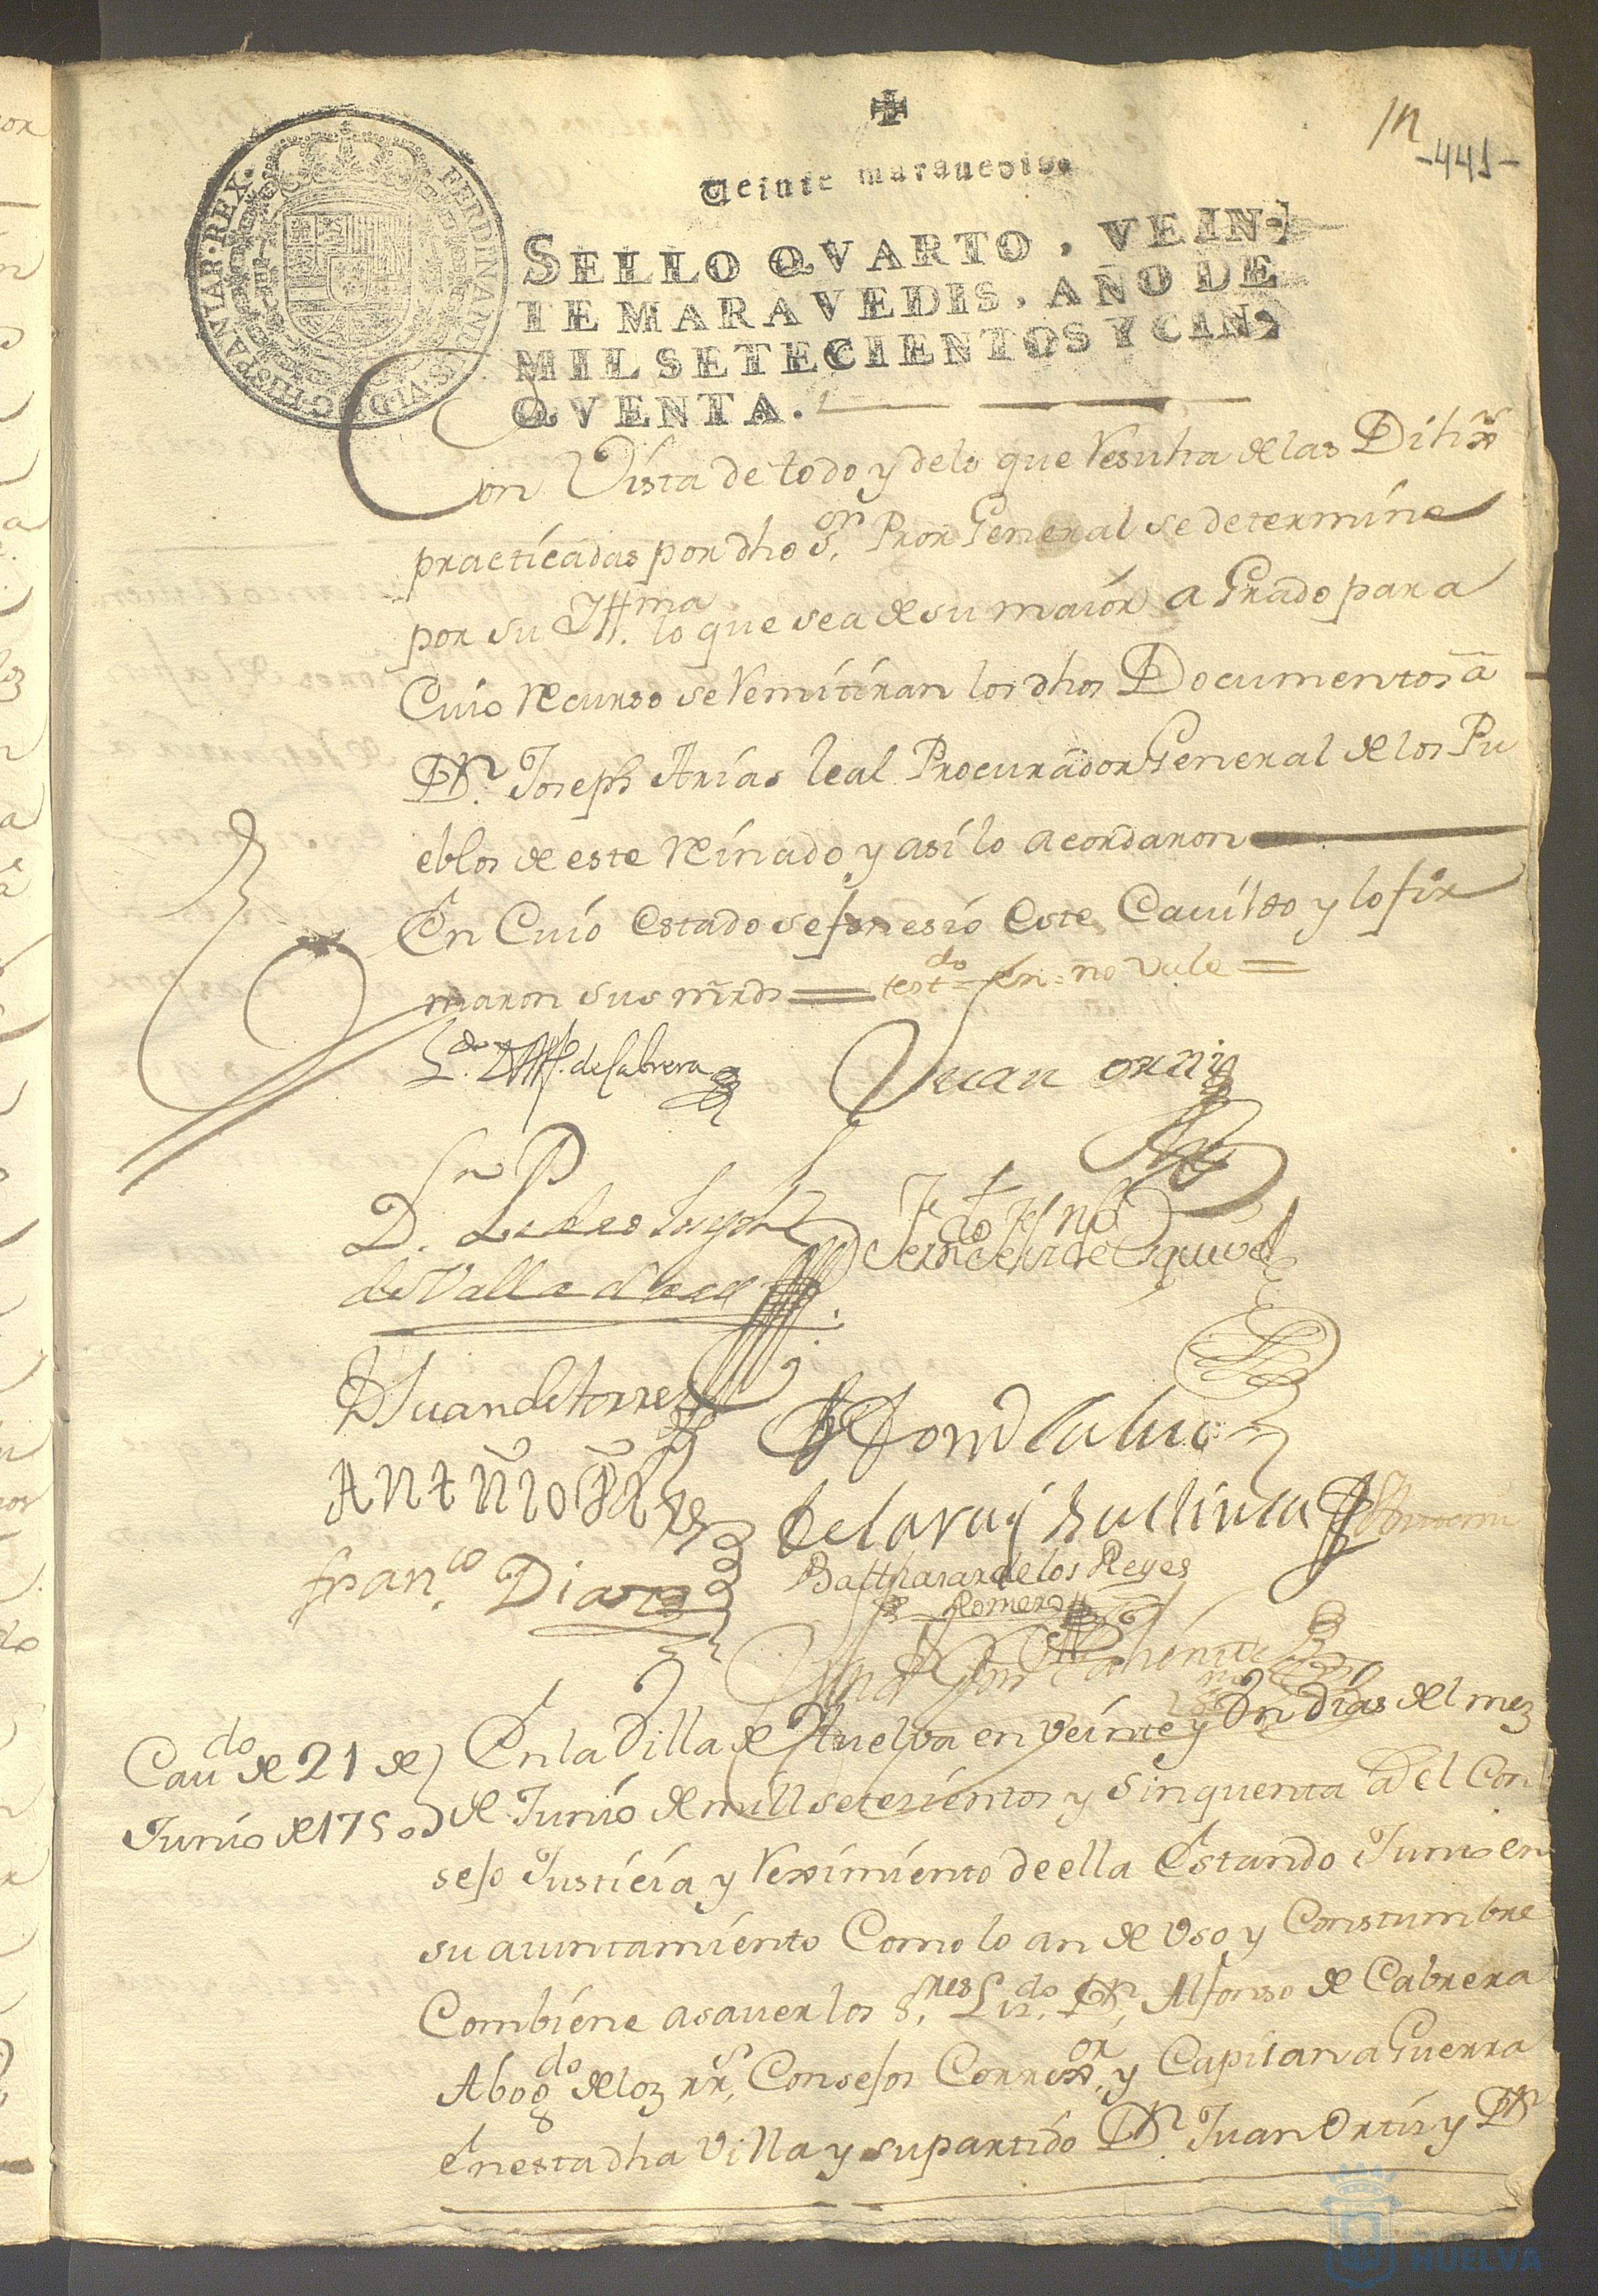 -441-
Veinte maravedis.
SELLO QVARTO, VEIN-
TE MARAVEDIS, AÑO DE
MIL SETECIENTOS Y CIN-
QVENTA.
FERDINANDUS·VI·D·G·HISPANIAR·REX·
Con Vista de todo y de lo que Resulta de las Dilix.s
practicadas por dho S.or Pror General se determine
por su Ill.ma lo que sea de su maior a Grado para
Cuio Recurso se Remitiran los dhos Documentos â
Dn. Joseph Arias leal Procurador General de los Pu
eblos de este Reinado y asi lo acordaron
En Cuio Estado se fenesio Este Cavildo y lo fir
maron sus mrds = test.do = fen = no vale =
L.do D. Alf.o de Cabrera
Juan ortiz
D. Pedro Joseph
de Valladares
de Esquivel
D Juan de torres
Antonio
Fran.co Diaz
Balthasar de los Reyes
Romero
Cav.do de 21 de
Junio de 1750
En la Villa de Huelva en veinte y Un dias del mez
de Junio de mill setesientos y sinquenta a. el Con
sejo Justicia y Reximiento de ella Estando Junto en
su aiuntamiento Como lo an de Uso y Constumbre
Combiene asaver los S.res Liz.do Dn. Alfonso de Cabrera
Abog.do de loz rr.s Consejos Correx.or y Capitan a Guerra
en esta dha Villa y su partido Dn. Juan Ortiz y Dn
HUELVA